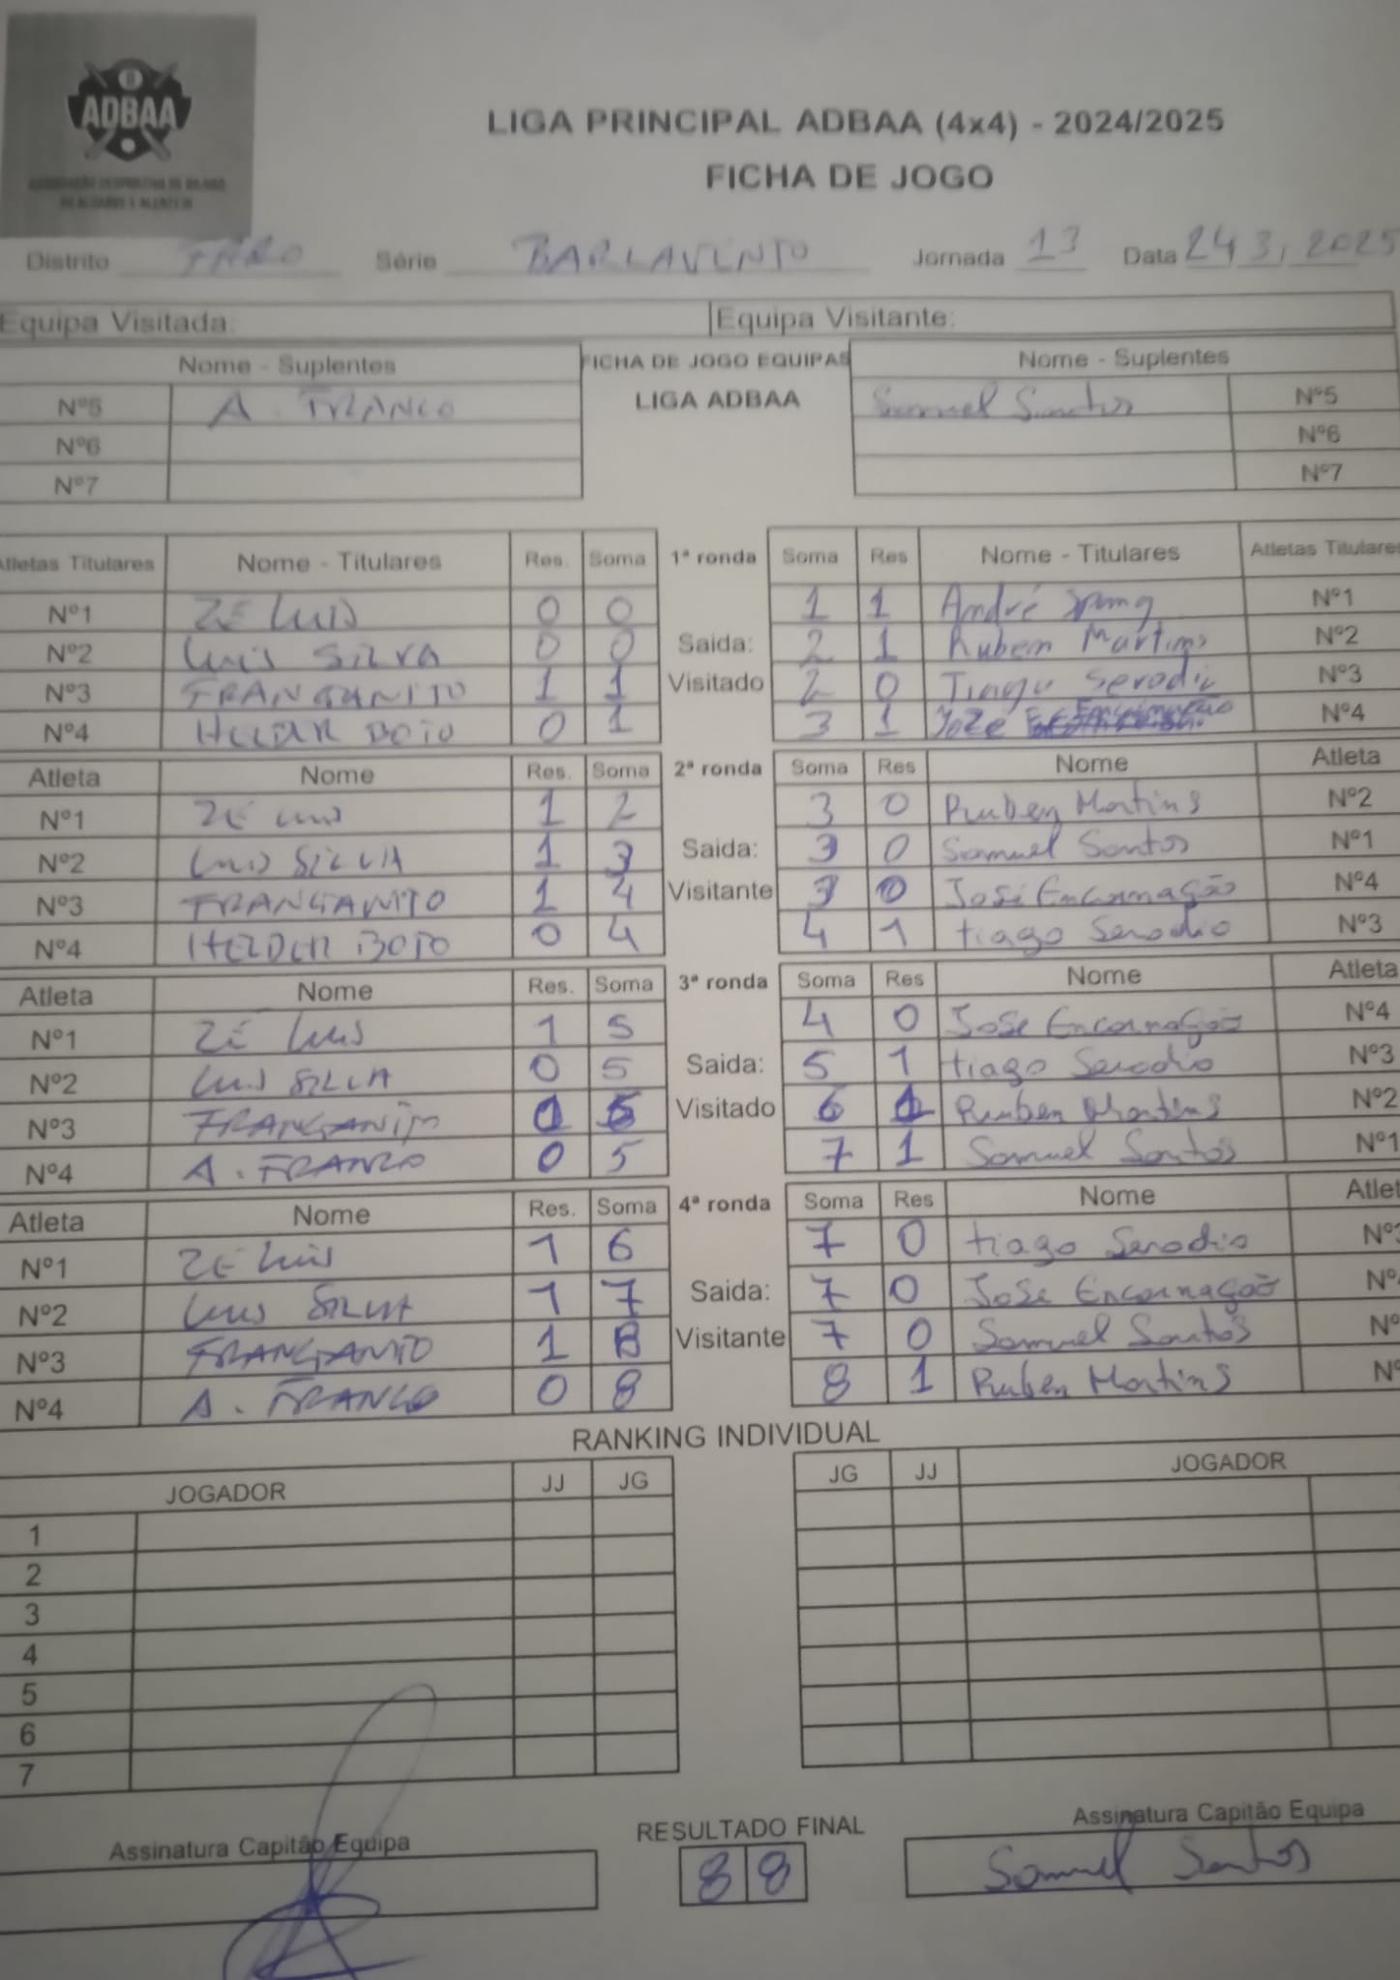 ADBAA
LIGA PRINCIPAL ADBAA (4x4) - 2024/2025
FICHA DE JOGO
Distrito FARO Série BARLAVENTO Jornada 13 Data 24/3/2025
Equipa Visitada: Equipa Visitante:
Nome - Suplentes FICHA DE JOGO EQUIPAS Nome - Suplentes
Nº5 A. FRANCO LIGA ADBAA Samuel Santos Nº5
Nº6 Nº6
Nº7 Nº7
Atletas Titulares Nome - Titulares Res. Soma 1ª ronda Soma Res Nome - Titulares Atletas Titulares
Nº1 ZÉ LUIS 0 0 1 1 André Nº1
Nº2 LUIS SILVA 0 0 Saida: 2 1 Ruben Martins Nº2
Nº3 FRANGANITO 1 1 Visitado 2 0 Tiago Serodio Nº3
Nº4 HELDER BOTO 0 1 3 1 Joze Encarnação Nº4
Atleta Nome Res. Soma 2ª ronda Soma Res Nome Atleta
Nº1 ZÉ LUIS 1 2 3 0 Ruben Martins Nº2
Nº2 LUIS SILVA 1 3 Saida: 3 0 Samuel Santos Nº1
Nº3 FRANGANITO 1 4 Visitante 3 0 José Encarnação Nº4
Nº4 HELDER BOTO 0 4 4 1 tiago Serodio Nº3
Atleta Nome Res. Soma 3ª ronda Soma Res Nome Atleta
Nº1 ZÉ LUIS 1 5 4 0 José Encarnação Nº4
Nº2 LUIS SILVA 0 5 Saida: 5 1 tiago Serodio Nº3
Nº3 FRANGANITO 0 5 Visitado 6 1 Ruben Martins Nº2
Nº4 A. FRANCO 0 5 7 1 Samuel Santos Nº1
Atleta Nome Res. Soma 4ª ronda Soma Res Nome Atlet
Nº1 ZÉ LUIS 1 6 7 0 tiago Serodio Nº3
Nº2 LUIS SILVA 1 7 Saida: 7 0 José Encarnação Nº
Nº3 FRANGANITO 1 8 Visitante 7 0 Samuel Santos Nº
Nº4 A. FRANCO 0 8 8 1 Ruben Martins Nº
RANKING INDIVIDUAL
JOGADOR JJ JG JG JJ JOGADOR
1
2
3
4
5
6
7
Assinatura Capitão Equipa RESULTADO FINAL Assinatura Capitão Equipa
8 8 Samuel Santos